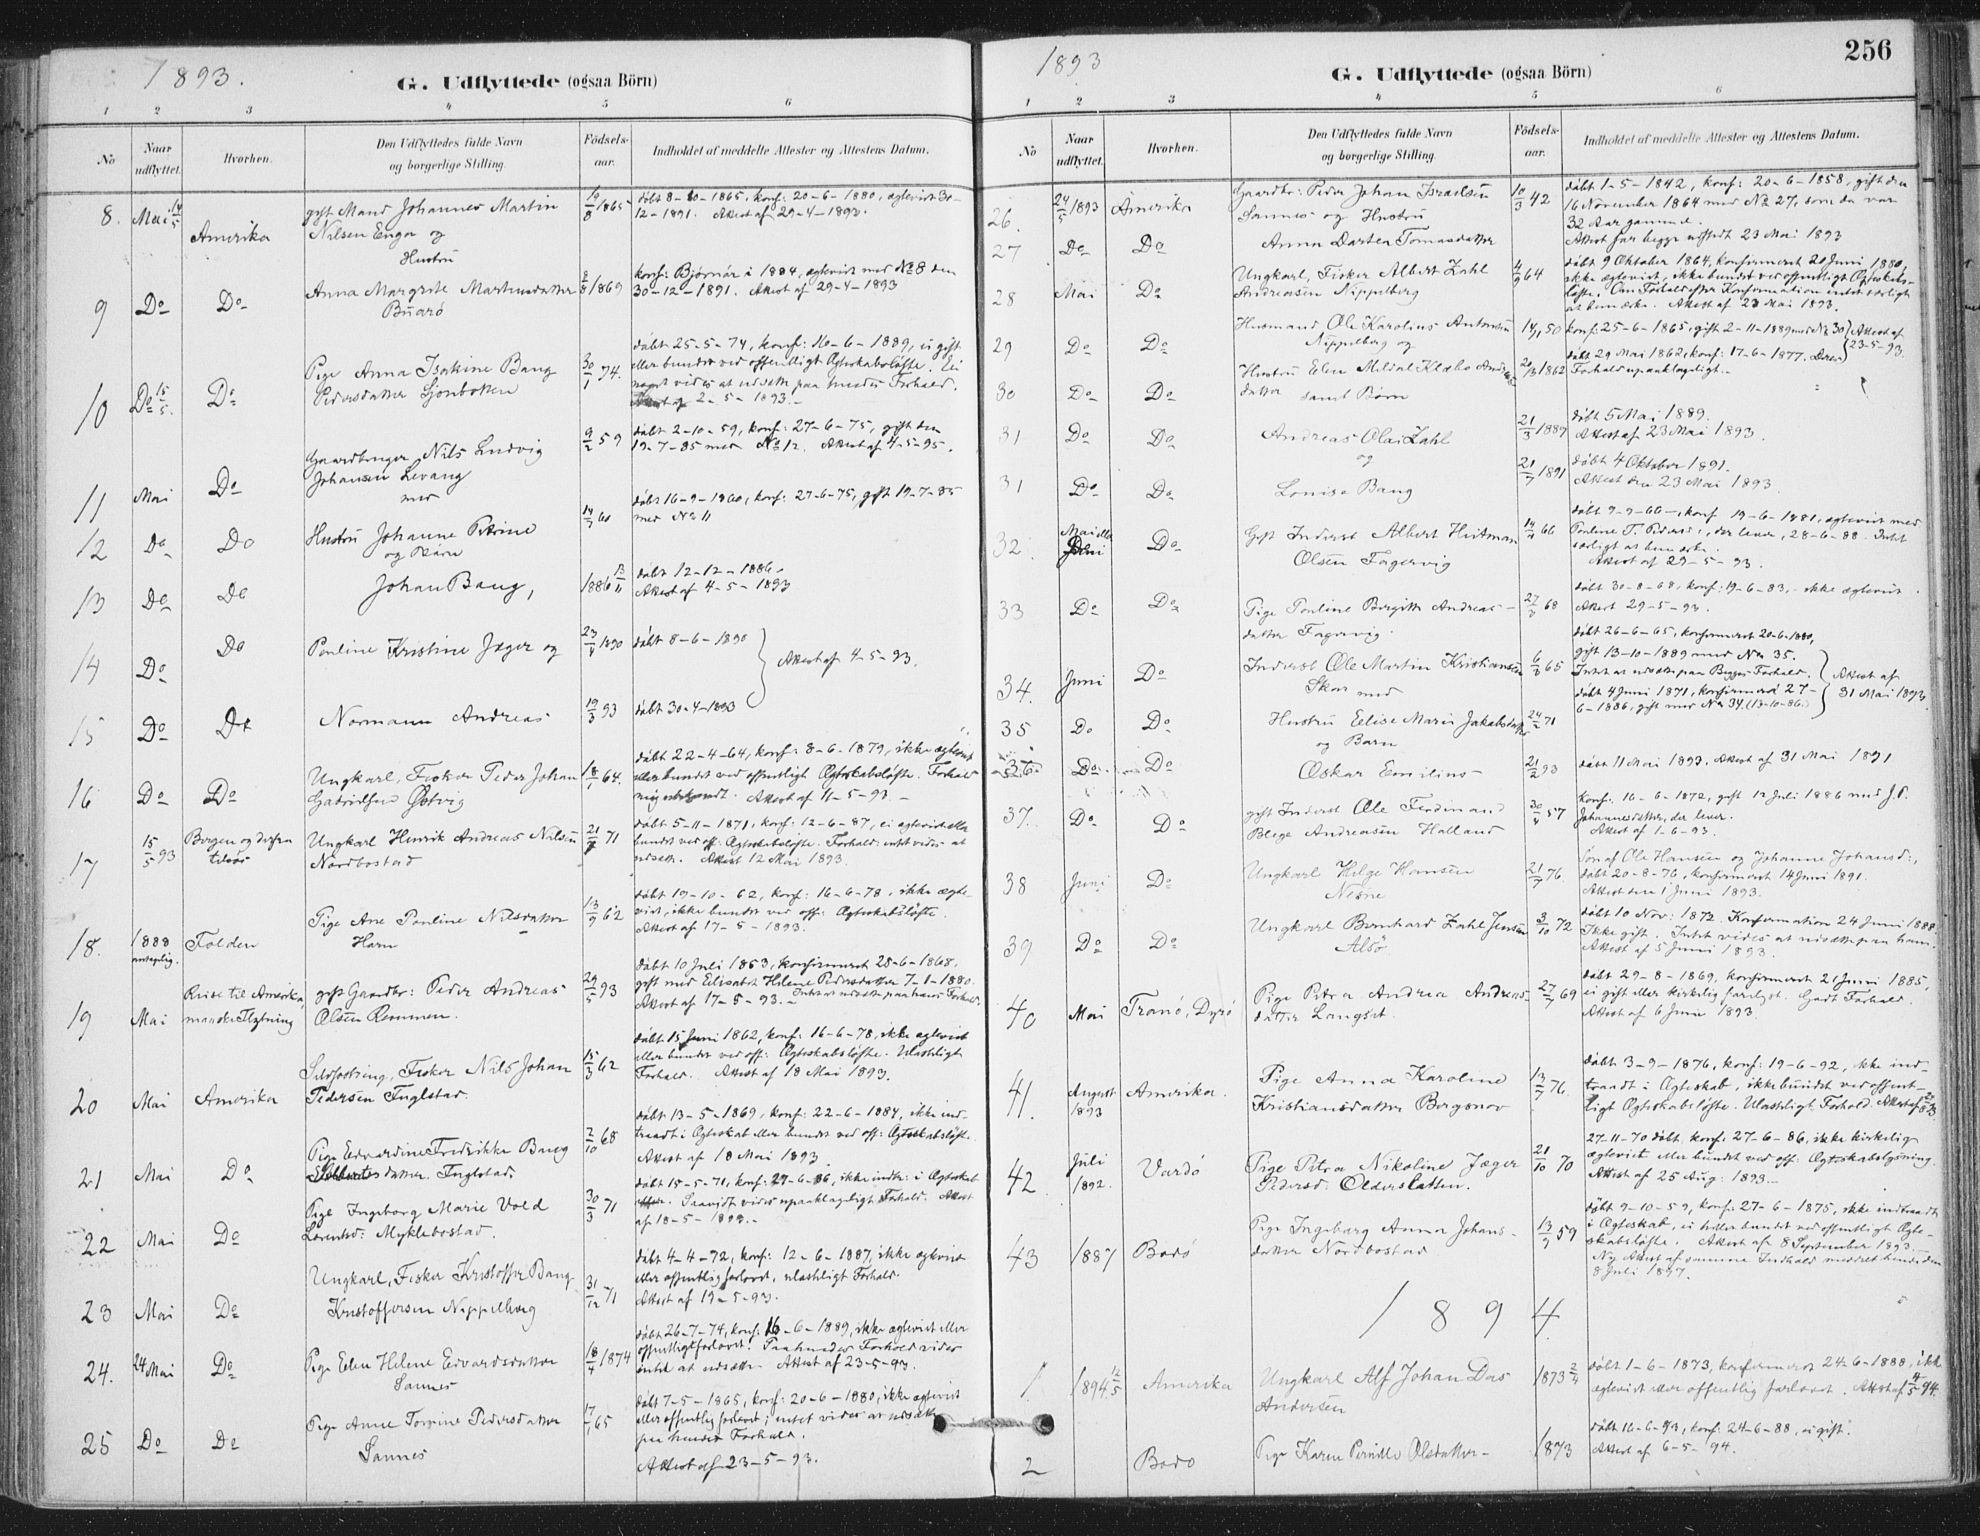 1893.
G. Udflyttede (ogsaa Börn)
1 2 3 4 5 6
No
Naar udflyttet.
Hvorhen.
Den Udflyttedes fulde Navn
og borgerlige Stilling.
Födsels-
aar.
Indholdet af meddelte Attester og Attestens Datum.
8. Mai 14/5 Amerika gift Mand Johannes Martin
Nilsen Enga og
Hustru
1865
döbt 8-10-1865, konf: 20-6-1880, ægteviet 30-
12-1891. Attest af 29-4-1893.
9 Do Do Anna Margrete Martinsdatter
Buarö
1869
konf: Björnör i 1884, ægteviet med No 8 den
30-12-1891. Attest af 29-4-1893
10 Do 15/5. Do Pige Anna Bang
Pedersdatter Sjonbotten
30/1 74.
döbt 25-5-74, konf: 16-6-1889, ei gift
eller bundet ved offentligt Ægteskabslöfte. Ei
noget vides at udsætte paa hendes Forhold.
Attest af 2-5-1893.-
11 Mai Do Gaardbruger Nils Ludvig
Johansen Levang
med
9/2 59
döbt 2-10-59, konf: 27-6-75, gift den
19-7-85 med No 12. Attest af 4-5-95.
12 Do Do Hustru Johanne Petrine
og Börn
döbt 16-9-1860, konf: 27-6-75, gift 19-7-85
med No 11
13 Do Do Johan Bang,
1886 13/11
döbt 12-12-1886.
Attest af 4-5-1893
14 Do Do Pauline Kristine Jæger og
1890
döbt 8-6-1890
Attest af 4-5-93.
15 Do Do Normann Andreas
19/3 93
döbt 30-4-1893
16 Do Do Ungkarl, Fisker Peder Johan
Gabrielsen Östvig
64.
döbt 22-4-64, konf: 8-6-1879, ikke ægteviet
eller bundet ved offentligt Ægteskabslöfte. Forhold
mig ubekjendt. Attest af 11-5-93.-
17 15/5 93 Bergen og derfra
tilsös
Ungkarl Henrik Andreas Nilsen
Nordbostad
71
döbt 5-11-1871, konf: 12-6-87, ei ægteviet eller
bundet ved off: Ægteskabslöfte. Forhold: intet vides at
udsætte. Attest 12 Mai 1893.
18. 1888
antagelig.
Folden
Pige Ane Pauline Nilsdatter
Havn
13/9 62
döbt 19-10-62, konf: 16-6-78, ikke ægte-
viet, ikke bundet ved off: Ægteskabslöfte.
Attest af 17-5-1893.
19 Mai Reise til Amerika,
maaske Flytning
gift Gaardbr: Peder Andreas
Olsen Remmen.
29/5 93
döbt 10 Juli 1853, konfirmeret 28-6-1868,
gift med Elisabet Helene Pedersdatter 7-1-1880.
Attest af 17-5-93.- Intet at udsætte paa hans Forhold.
20 Mai Amerika
Fisker Nils Johan
Pedersen Fuglstad.
15/3 62
döbt 15 Juni 1862, konf: 16-6-78, ikke ægteviet
eller bundet ved off: Ægteskabslöfte. Ulasteligt
Forhold. Attest af 18 Mai 1893.
21 Mai Do Pige Edvardine Fredrikke Bang
datter Fuglstad.
2/10 68
döbt 13-5-1869, konf: 22-6-1884, ikke ind-
traadt i Ægteskab eller bundet ved off: Ægteskabslöfte.
Attest af 18 Mai 1893.
22 Mai Do Pige Ingeborg Marie Vold
Lorentsd: Myklebostad.
30/3 71
döbt 15-5-71, konf: 27-6-86, ikke indtr: i Ægteskab
Saavidt vides upaaklageligt Forhold. Attest
af 18-5-1893.-
23 Mai Do Ungkarl, Fisker Kristoffer Bang
Kristoffersen Nippelberg
31/12 71
döbt 4-4-72, konf: 12-6-1887, ikke ægteviet
eller offentlig forlovet, ulasteligt Forhold.
Attest af 19-5-93.
24. 24 Mai Do Pige Elen Helene Edvardsdatter
Sannes
18/4 1874
döbt 26-7-74, konf: 16-6-1889, ikke ægteviet eller
offentligt forlovet. Paa hendes Forhold vides
intet at udsætte. Attest af 23-5-93.
25 Do Do Pige Anne Pedersdatter
Sannes
65
döbt 7-5-1865, konf: 20-6-1880, ikke ægteviet
eller offentlig forlovet; intet vides at udsætte
paa hendes Forhold.
Attest af 23-5-93.
1893
G. Udflyttede (ogsaa Börn)
256
1 2 3 4 5 6
No
Naar
udflyttet.
Hvorhen.
Den Udflyttedes fulde Navn
og borgerlige Stilling.
Födsels-
aar.
Indholdet af meddelte Attester og Attestens Datum.
26. 24/5 1893 Amerika Gaardbr: Peder Johan Israelsen
Sannes og Hustru
10/3 42
döbt 1-5-1842, konf: 20-6-1858, gift den
16 November 1864 med No 27, som da var
32 Aar gammel.
27 Do Do Anna Dortea Tomasdatter
Attest for begge udstedt 23 Mai 1893
28 Mai Do Ungkarl, Fisker Albert Zahl
Andreasen Nippelberg
4/9 64
döbt 9 Oktober 1864, konfirmeret 20 Juni 1880,
ikke ægteviet, ikke bundet ved offentligt Ægteskabs-
löfte. Om Forhold efter Konfirmation intet særligt
at bemærke. Attest af 23 Mai 1893.
29 Do Do Husmand Ole Karolius Antonsen
Nippelberg og
14/1 50
konf: 25-6-1865, gift 2-11-1889 med No 30
Attest af
23-5-93.
30 Do Do Hustru Elen Mildal Klæbo Andreas
datter samt Börn
1862
döbt 29 Mai 1862, konf: 17-6-1877. Deres
Forhold upaaklageligt.-
31 Do Do Andreas Olai Zahl
og
21/3 1889
döbt 5 Mai 1889.
Attest af 23 Mai 1893.
31 Do Do Louise Bang
21/7 1891
döbt 4 Oktober 1891.
Attest den 23 Mai 1893.
32. Mai eller
Juni
Do Gift Inderst Albert Hartman
Olsen Fagervig
66
döbt 9-9-66, konf 19-6-1881, ægteviet med
Pauline T. Pedersd:, der lever, 28-6-88. Intet
særligt at bemærke.
Attest af 29-5-93.
33 Do Do Pige Pauline Birgitte Andreas-
datter Fagervig.
68
döbt 30-8-68, konf: 19-6-83, ikke ægteviet.
Attest 29-5-93.
34. Juni Do Inderst Ole Martin Kristiansen
Skar med
65
döbt 26-6-65, konfirmeret 20-6-1880,
gift 13-10-1889 med No 35.
Intet at udsætte paa Begges Forhold.
Attest af
31 Mai 1893.
35 Do Do Hustru Elise Marie Jakobsdatter
og Barn
71
döbt 4 Juni 1871, konfirmeret 27-
6-1886, gift med No 34. (13-10-86.)
36. Do Do Oskar Emilius
21/2 93
döbt 11 Mai 1893. Attest af 31 Mai 1891
37. Do Do gift Inderst Ole Ferdinand
Andreasen Halland
30/4 57
konf: 16-6-1872, gift 12 Juli 1886 med J.P.
Johannesdatter, der lever.
Attest af 1-6-93.
38 Juni Do Ungkarl Helge Hansen
Nesne
21/7 76.
Sön af Ole Hansen og Johanne Johansd:,
döbt 20-8-76, konfirmeret 14 Juni 1891.
Attest den 1 Juni 1893.
39 Do Do Ungkarl Bernhard Zahl Jensen
Alsö
3/10 72
döbt 10 Nov: 1872. Konfirmation 24 Juni 1888.
Ikke gift. Intet vides at udsætte paa ham.
Attest af 5 Juni 1893.
40 Mai Tranö, Dyrö Pige Petra Andrea Andreas-
datter Langset.
27/7 69
döbt 29-8-1869, konfirmeret 21 Juni 1885,
ei gift eller kirkelig forlovet. Godt Forhold.
Attest af 6 Juni 1893.
41. August
1893
Amerika. Pige Anna Karoline
Kristiansdatter Bergsnov
13/7 76.
döbt 3-9-1876, konf: 19-6-92, ikke ind-
traadt i Ægteskab, ikke bundet ved offent-
ligt Ægteskabslöfte. Ulasteligt Forhold. Attest af
42 Juli
1892.
Vardö Pige Petra Nikoline Jæger
Pedersd: Oldersletten.
21/10 70
27-11-70 döbt, konf: 27-6-86, ikke kirkelig
ægteviet eller bundet ved off: Ægteskabslysning.
Attest af 25 Aug: 1893.-
43 1887 Bodö Pige Ingeborg Anna Johans-
datter Nordbostad
13/9 59
döbt 9-10-59, konf: 27-6-1875, ikke indtraadt
i Ægteskab, ei heller bundet ved offentligt Ægte-
skabslöfte. Attest af 8 September 1893.-
Ny Attest af samme Indhold meddelt hende den
8 Juli 1897.
1894
1 1894 12/5 Amerika Ungkarl Alf Johan Das
Andersen
1873 2/4
döbt 1-6-1873, konfirmeret 24-6-1888, ikke
ægteviet eller offentlig forlovet. Attest af 4/5 94.
2 Bodö Pige Karen Pernille Olsdatter-
1873
döbt 16-6-93, konf: 24-6-88, ei gift.
Attest af 6-5-94.